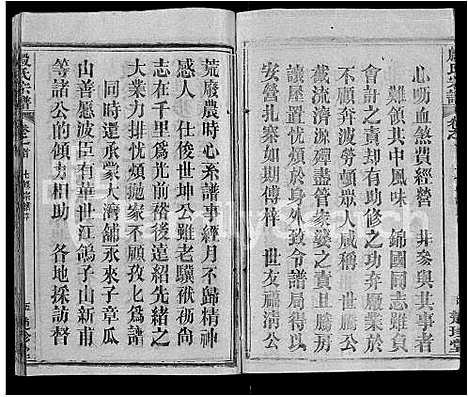 心呖血煞費經營 其參與其事者
難領其中風味 錦國同志雖負
會計之功共有助修之功弃廢業於
不顧奔波勞頓眾人咸感 世騰房
載流濟源殫盡管家婆之責且騰房
讓屋置煩於身外致令譜局同人
安營扎寨如期傅梓 世友福清公
荒廢農時心系譜事經月不歸精神
感人 仕俊世坤公雖老驥伏櫪尚
志在千里為光前裕後遠紹先緒之
大業力排憂煩拋家不顧孜匕為譜
同時還承蒙大灣舖永來子章瓜
山善愿波臣有華世江鴿子山新甫
等諸公的傾力相助 各地採訪督
殷氏宗譜